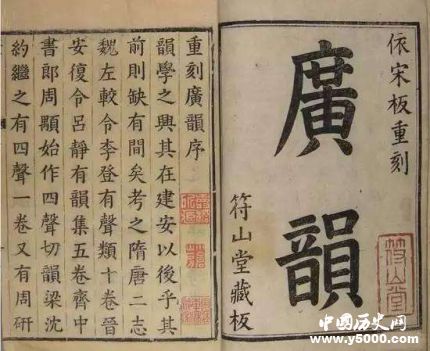 依宋板重刻
廣韻
符山堂藏板
符山堂
重刻廣韻序
韻學之興其在建安以後乎其
前則缺有間矣考之隋唐二志
魏左較令李登有聲類十卷晉
安復令呂靜有韻集五卷齊中
書郎周顒始作四聲切韻梁沈
約繼之有四聲一卷又有周研
中国历史网
www.y5000.com